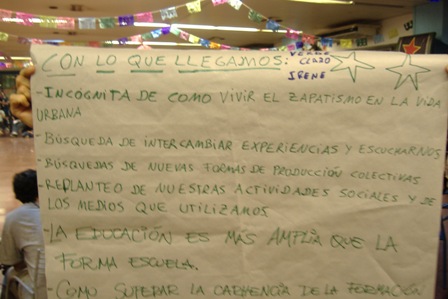 CON LO QUE LLEGAMOS:
IRENE
-INCOGNITA DE COMO VIVIR EL ZAPATISMO EN LA VIDA
URBANA
-BÚSQUEDA DE INTERCAMBIAR EXPERIENCIAS Y ESCUCHARNOS
-BÚSQUEDAS DE NUEVAS FORMAS DE PRODUCCIÓN COLECTIVAS
-REPLANTEO DE NUESTRAS ACTIVIDADES SOCIALES Y DE
LOS MEDIOS QUE UTILIZAMOS
-LA EDUCACIÓN ES MÁS AMPLIA QUE LA
FORMA ESCUELA.
-COMO SUPERAR LA CARMENCIA DE LA FORMACIÓN